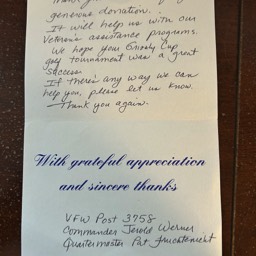 generous donation.
It will help us with our
Veterans assistance programs.
We hope your Cup
golf tournament was a great
success.
If there's any way we can
help you, please let us know.
Thank you again.
With grateful appreciation
and sincere thanks
VFW Post 3758
Commander Jerold Werner
Quartermaster Pat Fruchtenicht